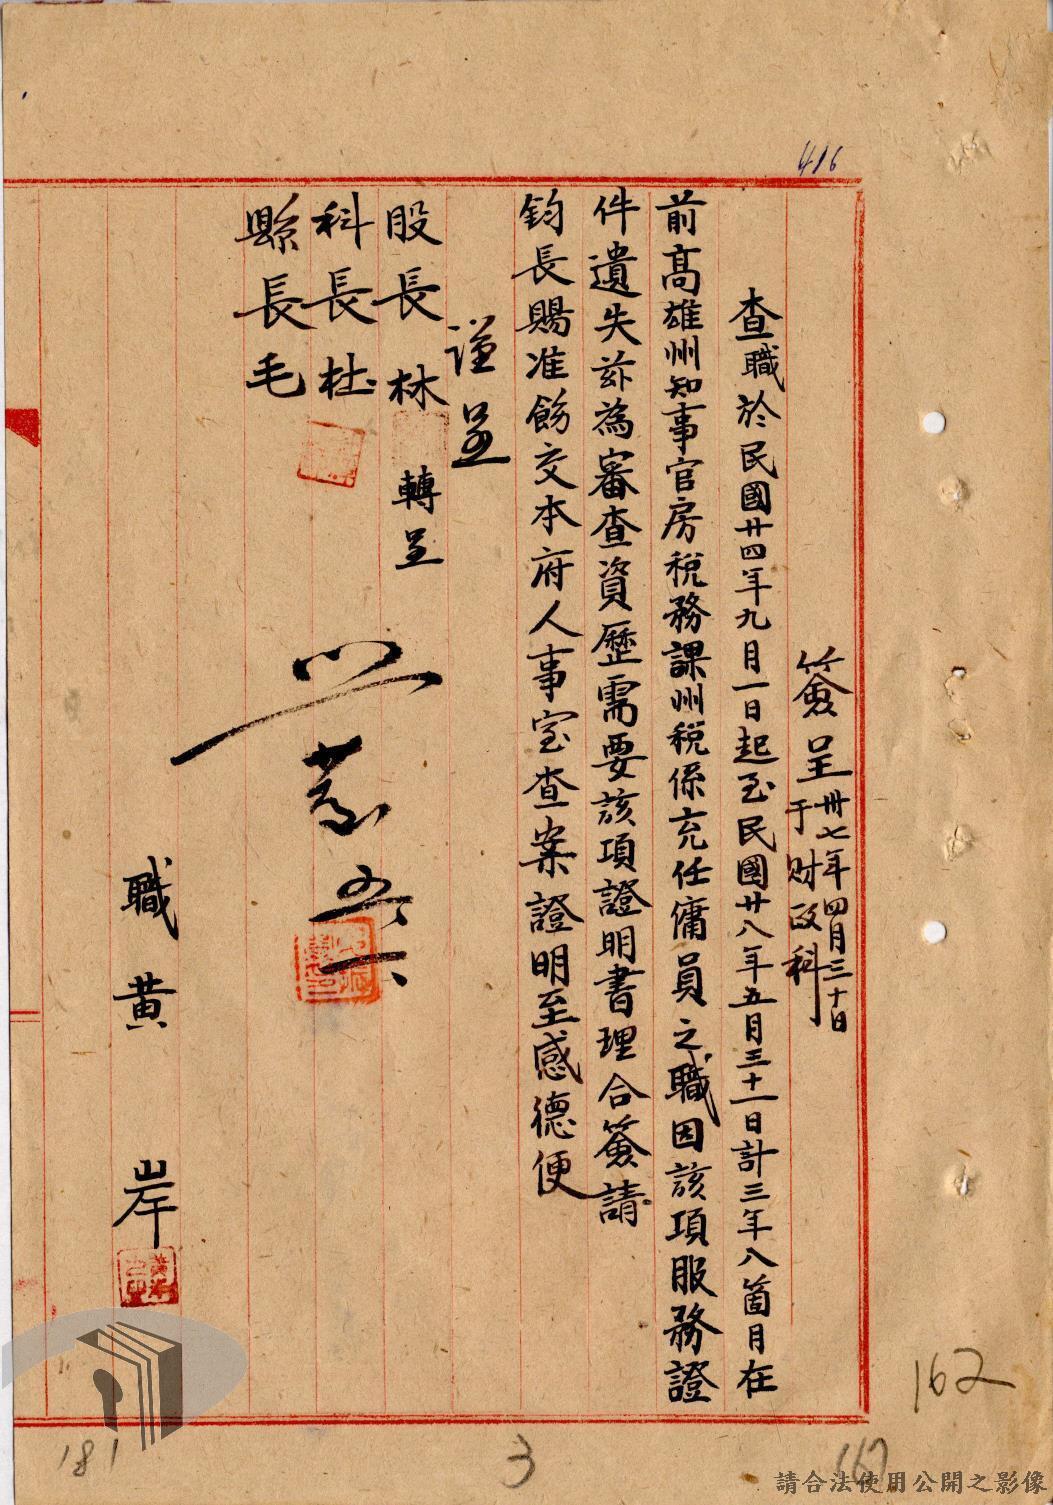 416
簽呈 卅七年四月三十日
于財政科
查職於民國廿四年九月一日起至民國廿八年五月三十一日計三年八箇月在
前高雄州知事官房稅務課州稅係充任傭員之職因該項服務證
件遺失茲為審查資歷需要該項證明書理合簽請
鈞長賜准飭交本府人事室查案證明至感德便
謹呈
股長林 轉呈
科長杜
縣長毛
職黃岸
162
181
3
請合法使用公開之影像